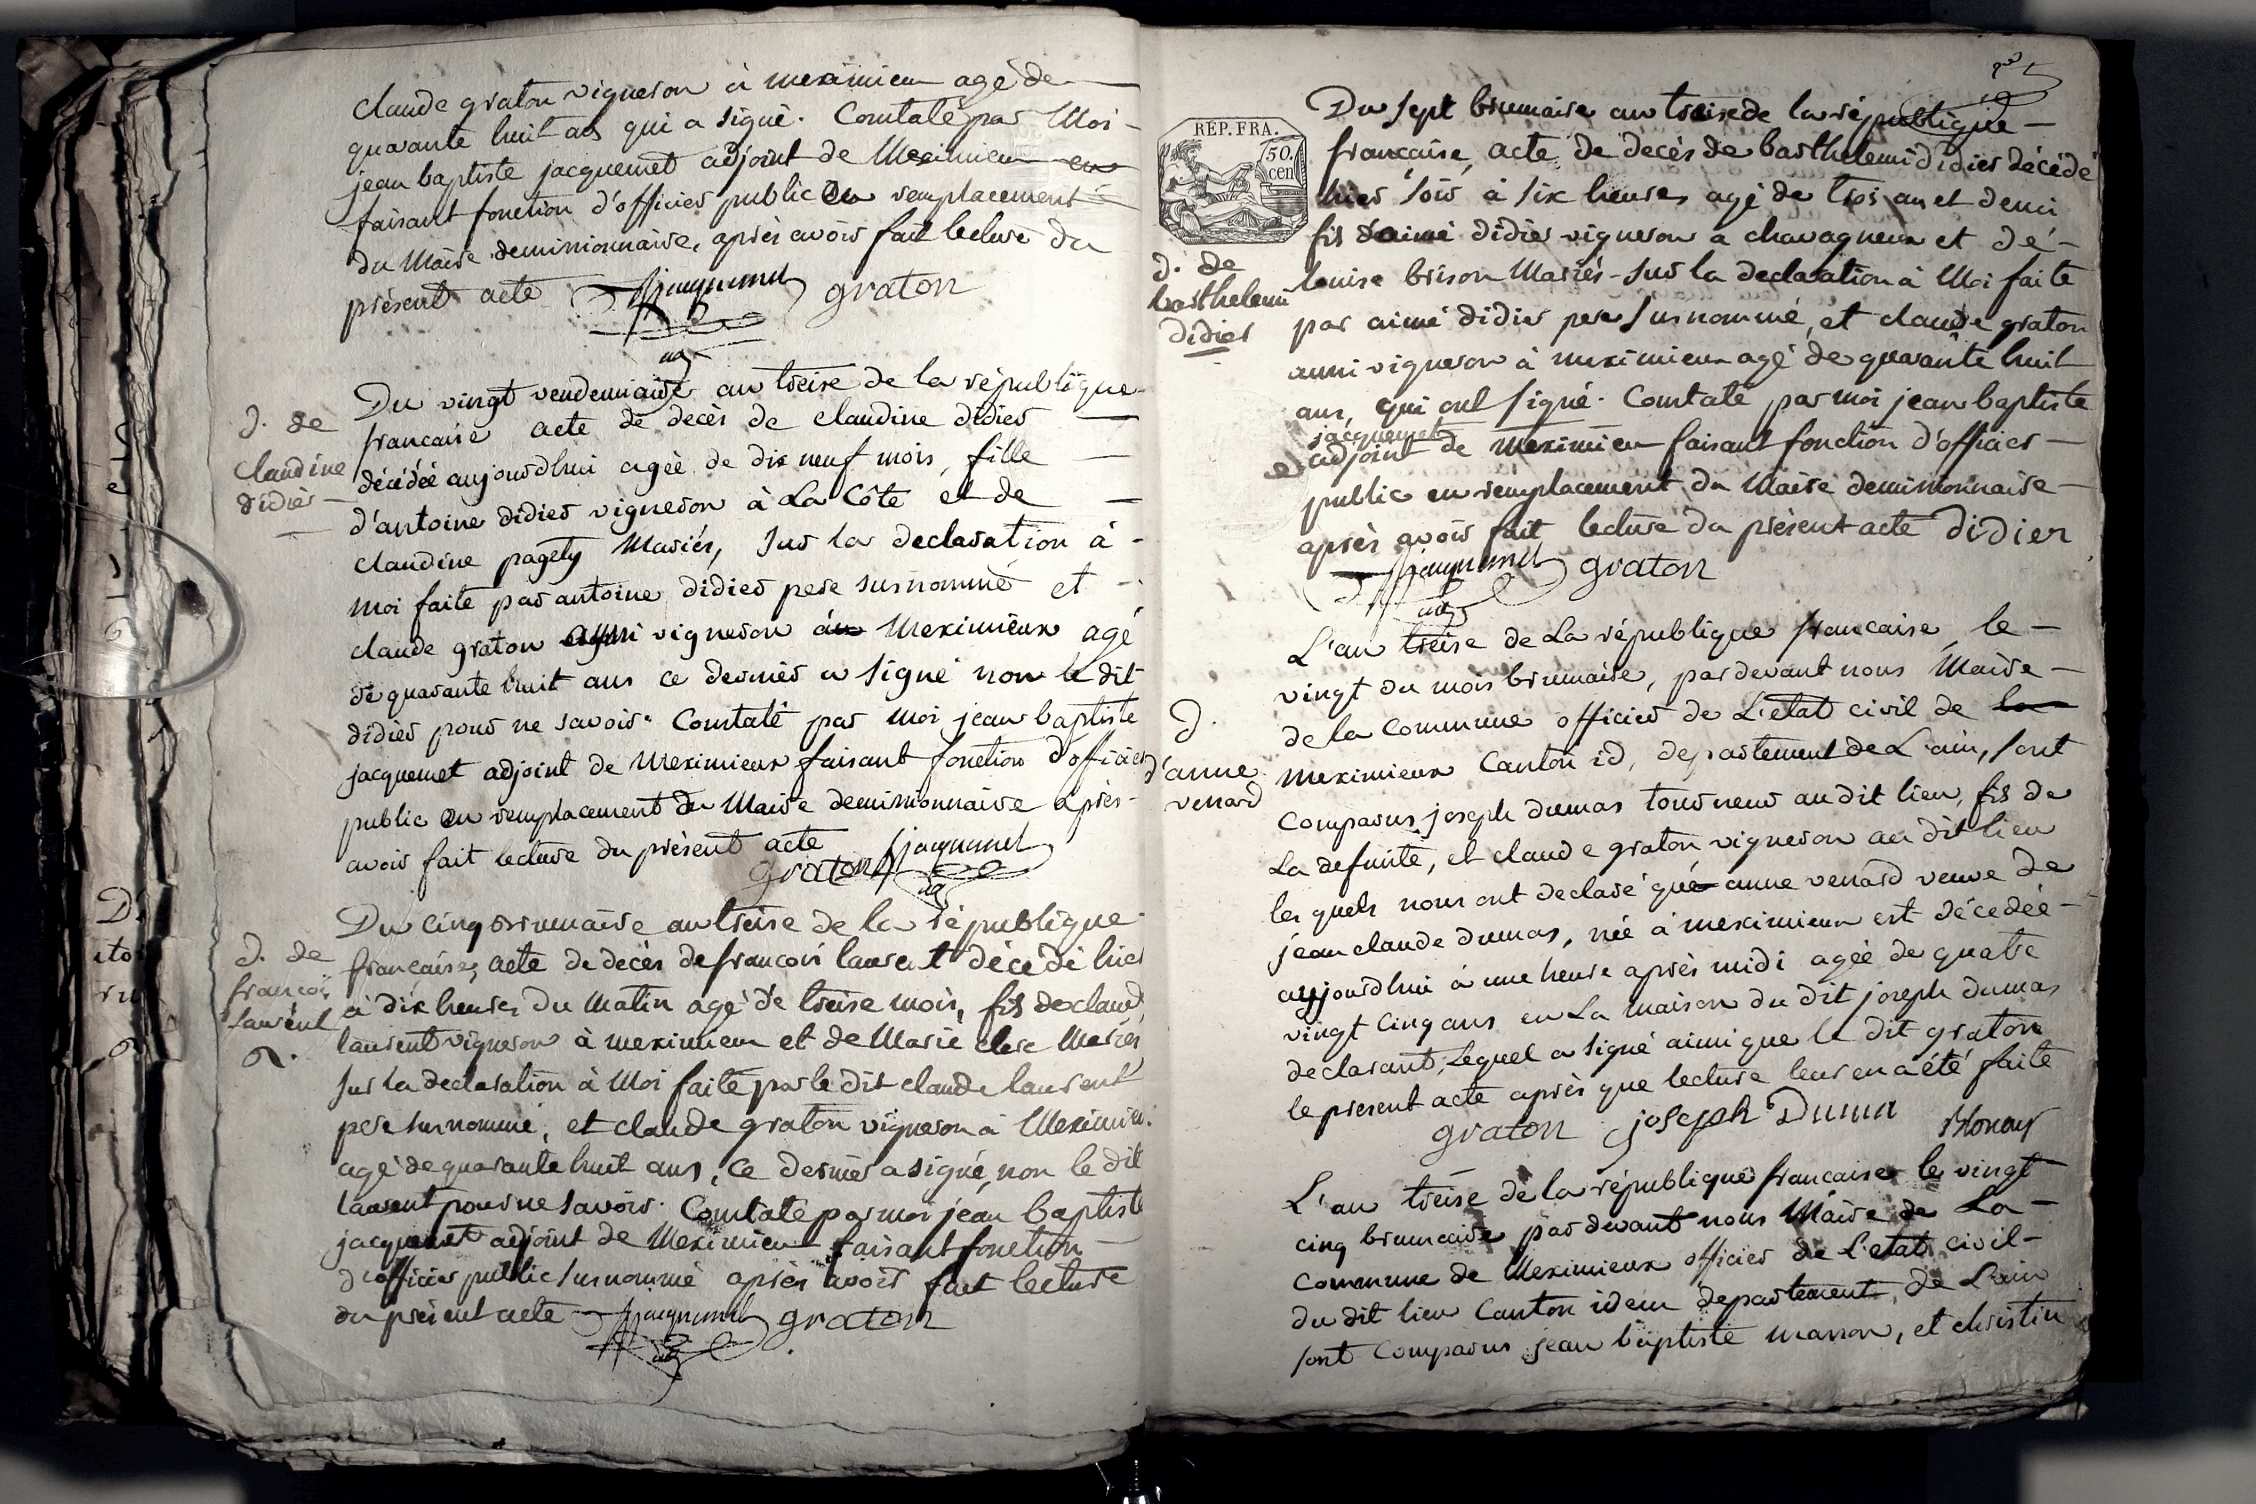 claude graton vigneron à meximieu agé de
quarante huit ans qui a signé. Constaté par Moi
jean baptiste jacquemet adjoint de Meximieu
faisant fonction d'officier public en remplacement
du Maire demissionnaire, après avoir fait lecture du
présent acte Jacquemet graton
adj
d. de
Claudine
didier
Du vingt vendemiaire an treise de la république
francaise acte de decès de claudine didier
décédée aujourdhui agée de dix neuf mois, fille
d'antoine didier vigneron à La Côte et de
claudine pagety Mariés, sur la declaration à
moi faite par antoine didier pere susnommé et
claude graton aussi vigneron à Meximieux agé
de quarante huit ans ce dernier a signé non le dit
didier pour ne savoir. Constaté par moi jean baptiste
jacquemet adjoint de Meximieux faisant fonction d'officier
public en remplacement du Maire demissionnaire après
avoir fait lecture du présent acte Jacquemet
graton adj
d. de
francois
laurent
Du cinq brumaire an treise de la république
francaise, acte de decès de francois laurent décédé hier
à dix heures du matin agé de treise mois, fils de claude
laurent vigneron à meximieu et de Marie clerc Mariés
sur la declaration à Moi faite par le dit claude laurent
pere susnommé, et claude graton vigneron à Meximieu
agé de quarante huit ans, ce dernier a signé, non le dit
laurent pour ne savoir. Constaté par moi jean baptiste
jacquemet adjoint de Meximieu faisant fonction
d'officier public susnommé après avoir fait lecture
du présent acte Jacquemet graton
adj
RÉP. FRA.
50.
cen
d. de
barthelemi
didier
Du sept brumaire an treise de la république
francaise, acte de decès de barthelemi didier décédé
hier soir à six heures agé de trois an et demi
fils d'aimé didier vigneron a chavagneux et de
louise brison Mariés - sur la declaration à Moi faite
par aimé didier pere susnommé, et claude graton
aussi vigneron à meximieux agé de quarante huit
ans, qui ont signé. Constaté par moi jean baptiste
jacquemet
adjoint de Meximieu faisant fonction d'officier
public en remplacement du Maire demissionnaire
après avoir fait lecture du présent acte didier
Jacquemet graton
adj
d.
d'anne
venard
L'an treise de La république francaise, le
vingt du mois brumaire, pardevant nous Maire
de la commune officier de L'état civil de
meximieux Canton id, departement de L'ain, sont
comparus joseph dumas tourneur au dit lieu, fils de
La defunte, et claude graton vigneron au dit lieu
les quels nous ont declaré que anne venard veuve de
jean claude dumas, née à meximieux est décédée
aujourdhui à une heure après midi agée de quatre
vingt cinq ans en La maison du dit joseph dumas
declarant, Lequel a signé ainsi que le dit graton
le present acte après que lecture leur en a été faite
graton joseph Dumas
L'an treise de la république francaise le vingt
cinq brumaire pardevant nous Maire de La
Commune de Meximieux officier de L'etat civil
du dit lieu Canton idem departement de L'ain
sont comparus jean baptiste masson, et christin